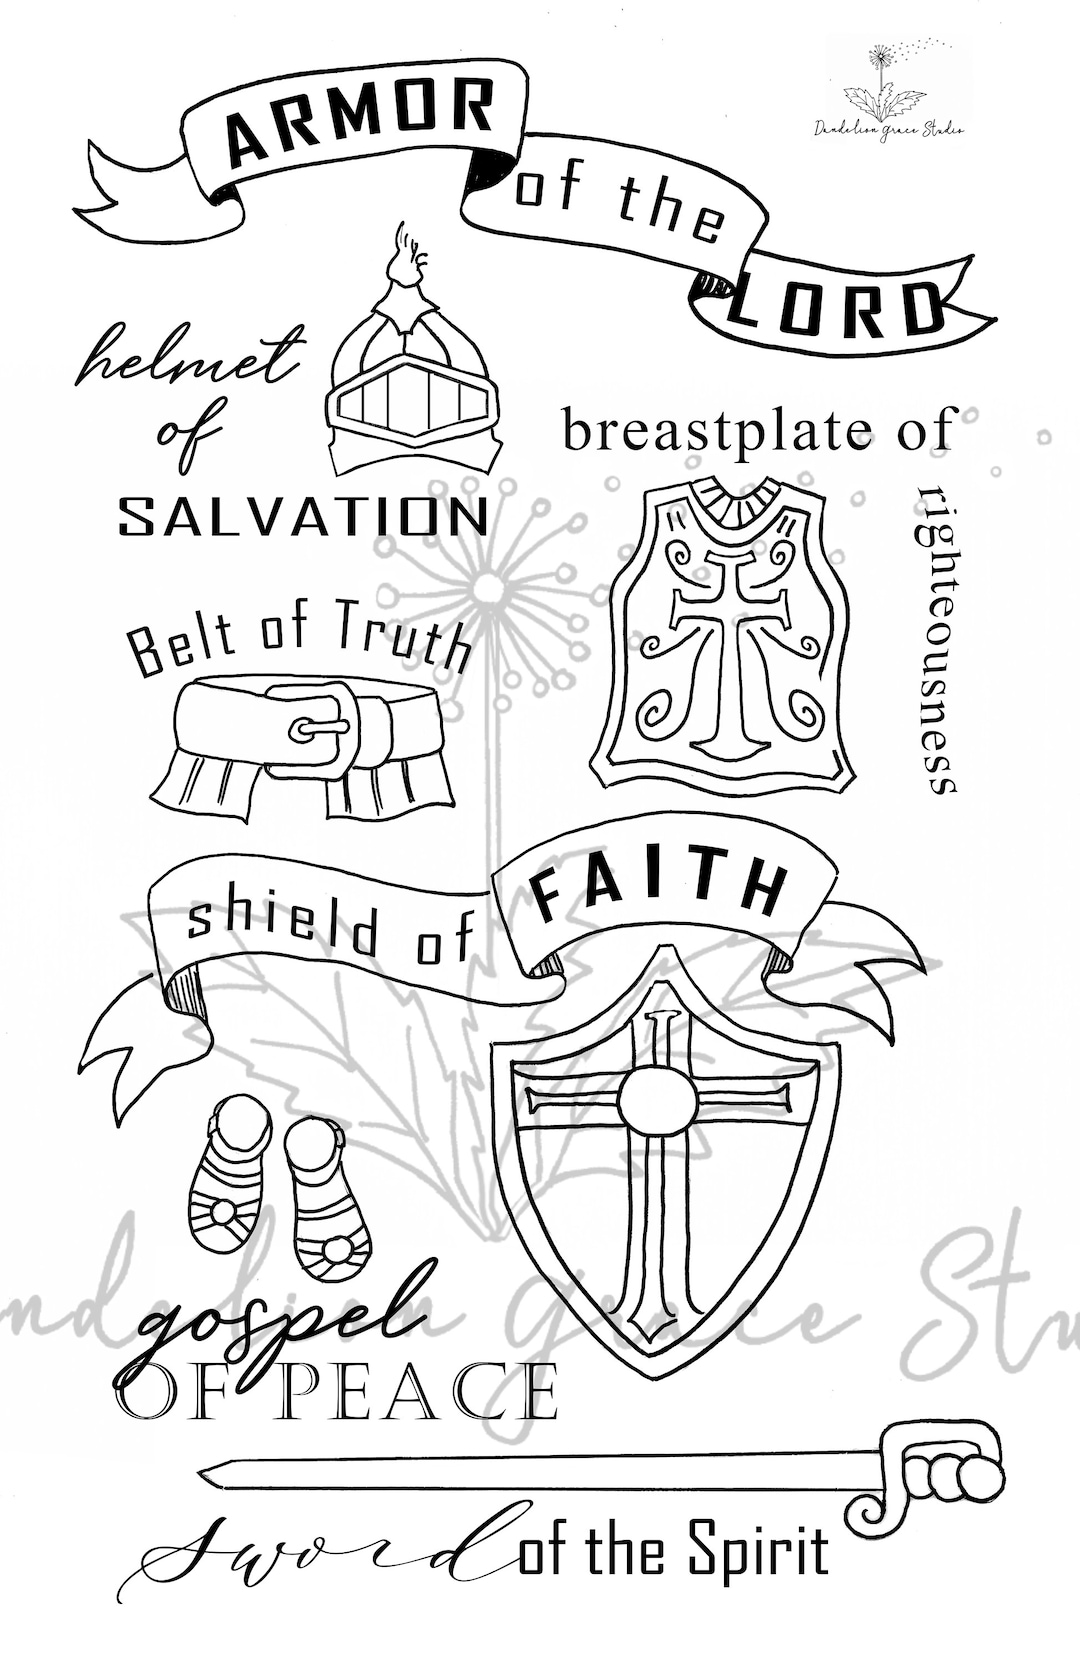 Dandelion Grace Studio
ARMOR
of the
LORD
helmet
of
SALVATION
breastplate of
righteousness
Belt of Truth
shield of
FAITH
gospel
OF PEACE
sword of the Spirit
ndelion Grace Stu